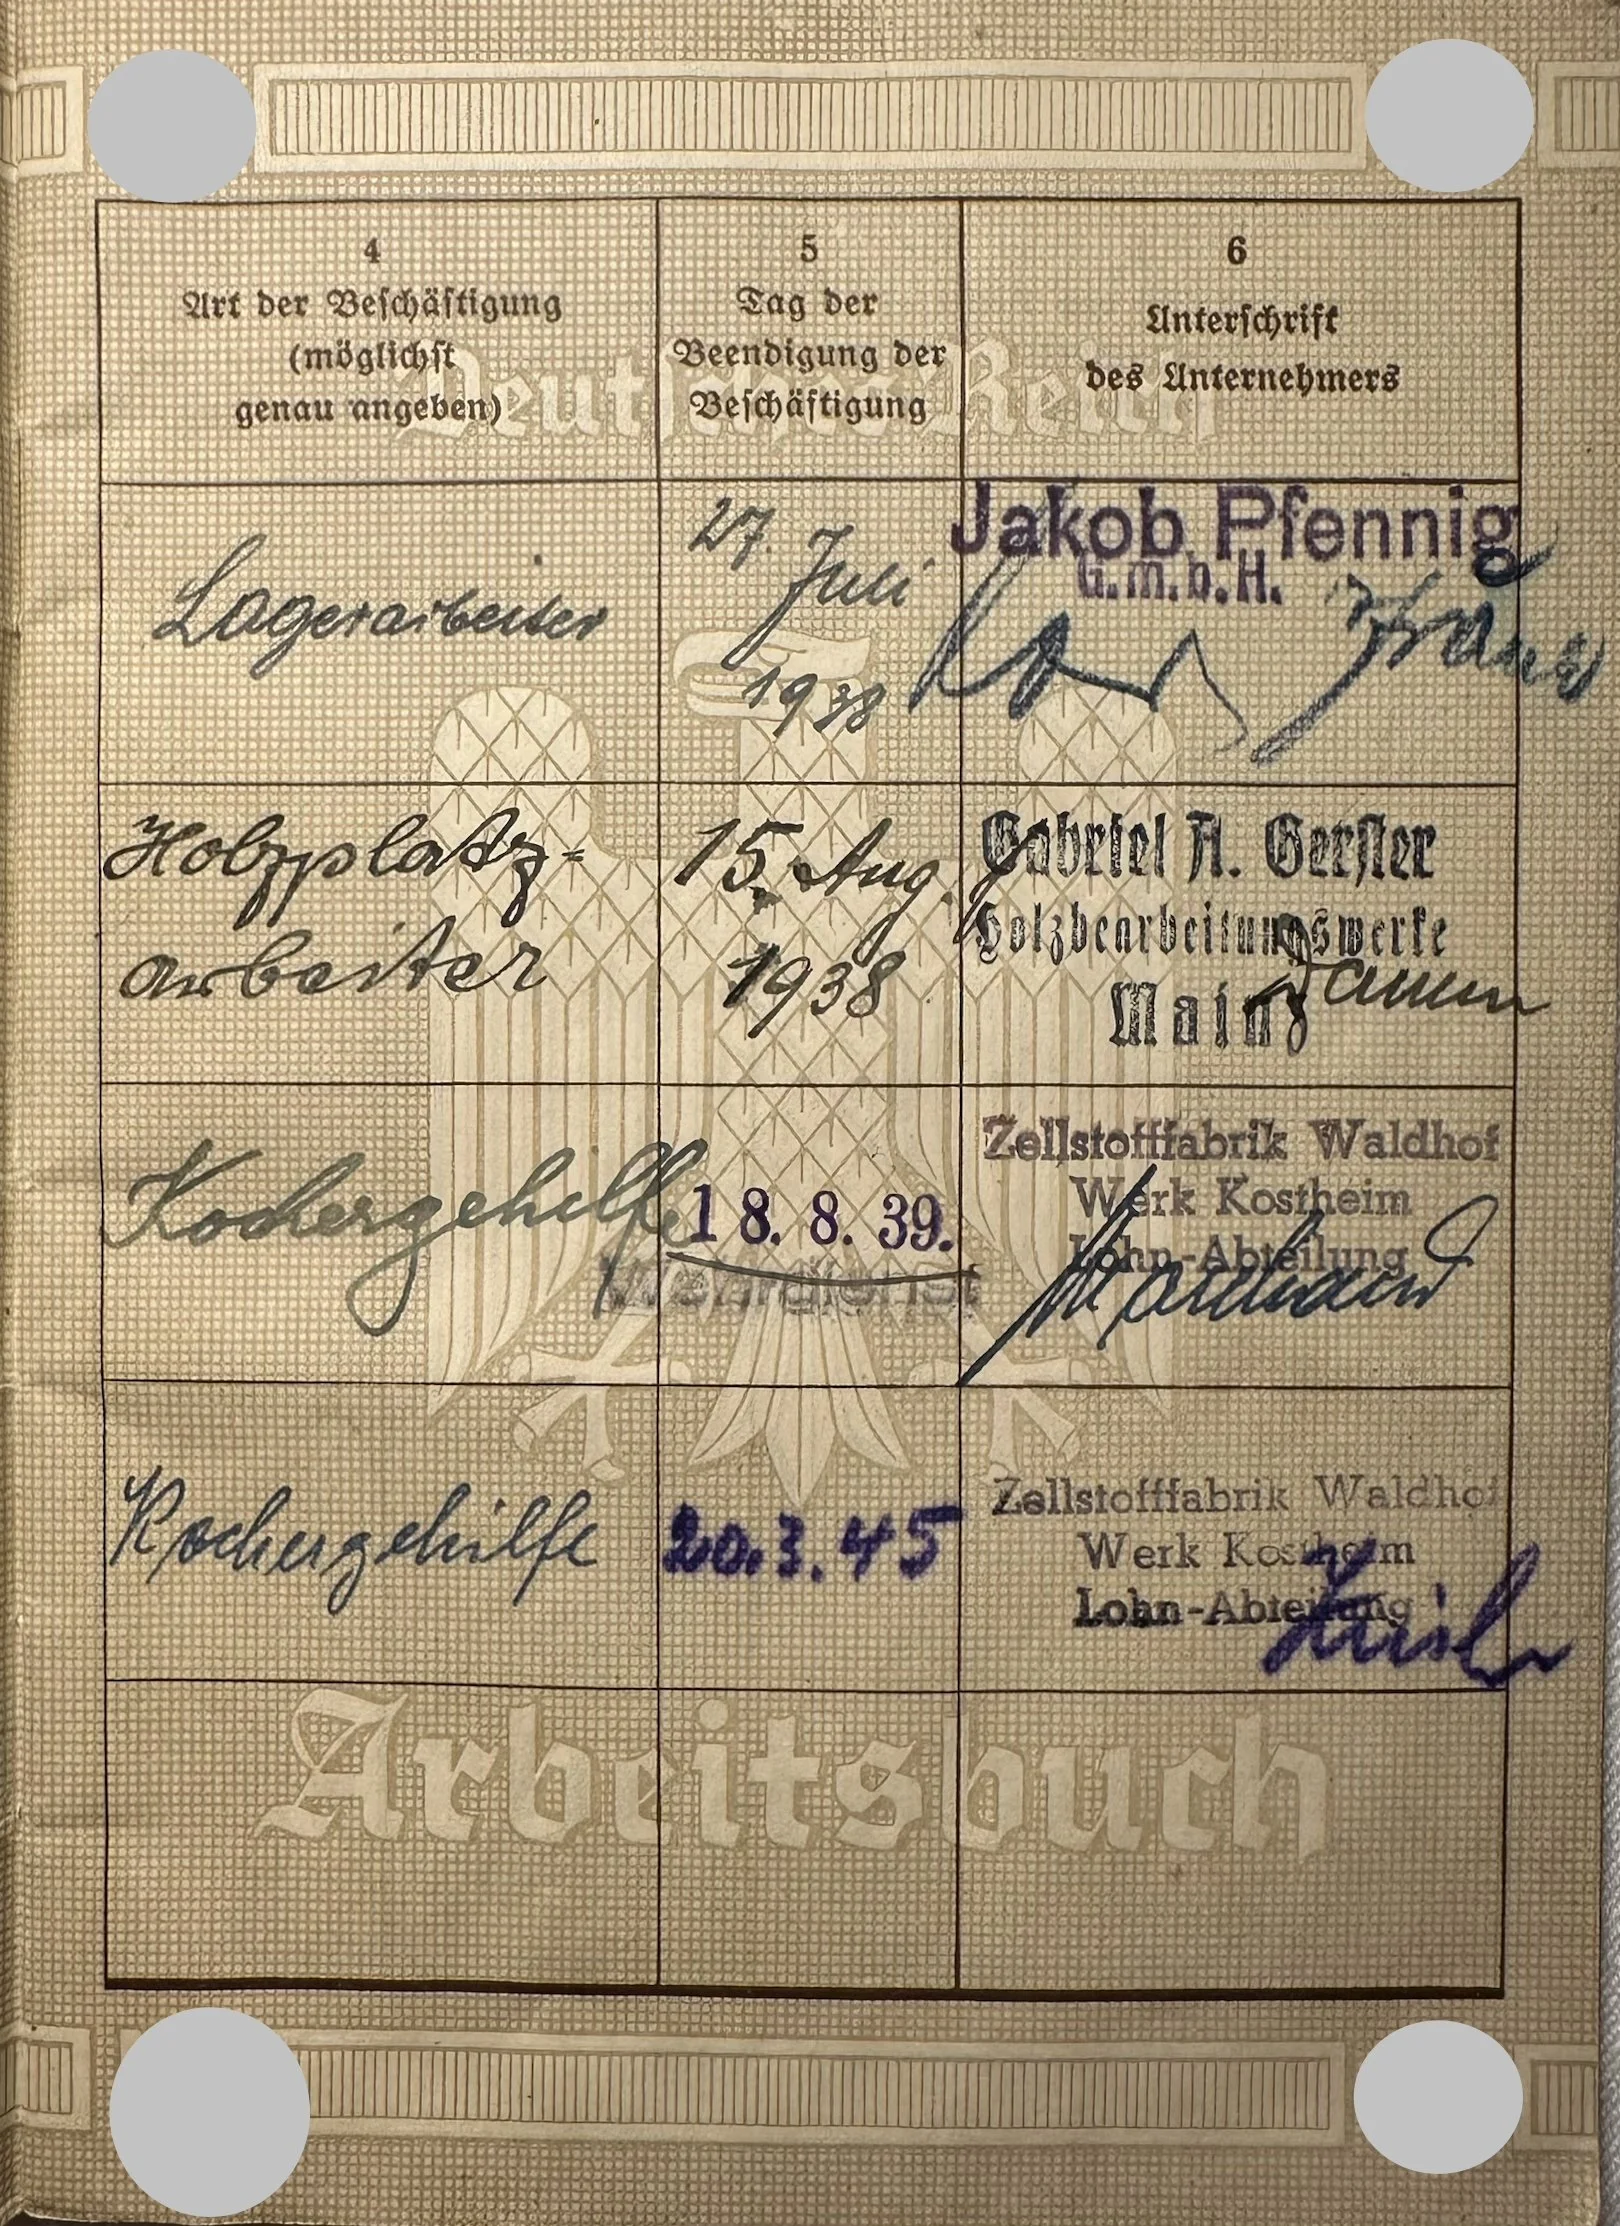 4
Art der Beschäftigung
(möglichst
genau angeben)
5
Tag der
Beendigung der
Beschäftigung
6
Unterschrift
des Unternehmers
Deutsches Reich
Lagerarbeiter
27. Juli
1938
Jakob Pfennig
G.m.b.H.
Holzplatz-
arbeiter
15. Aug.
1938
Gabriel A. Gerster
Holzbearbeitungswerke
Mainz
Kochergehilfe
18. 8. 39.
Wehrdienst
Zellstofffabrik Waldhof
Werk Kostheim
Lohn-Abteilung
Kochergehilfe
20.3.45
Zellstofffabrik Waldhof
Werk Kostheim
Lohn-Abteilung
Arbeitsbuch